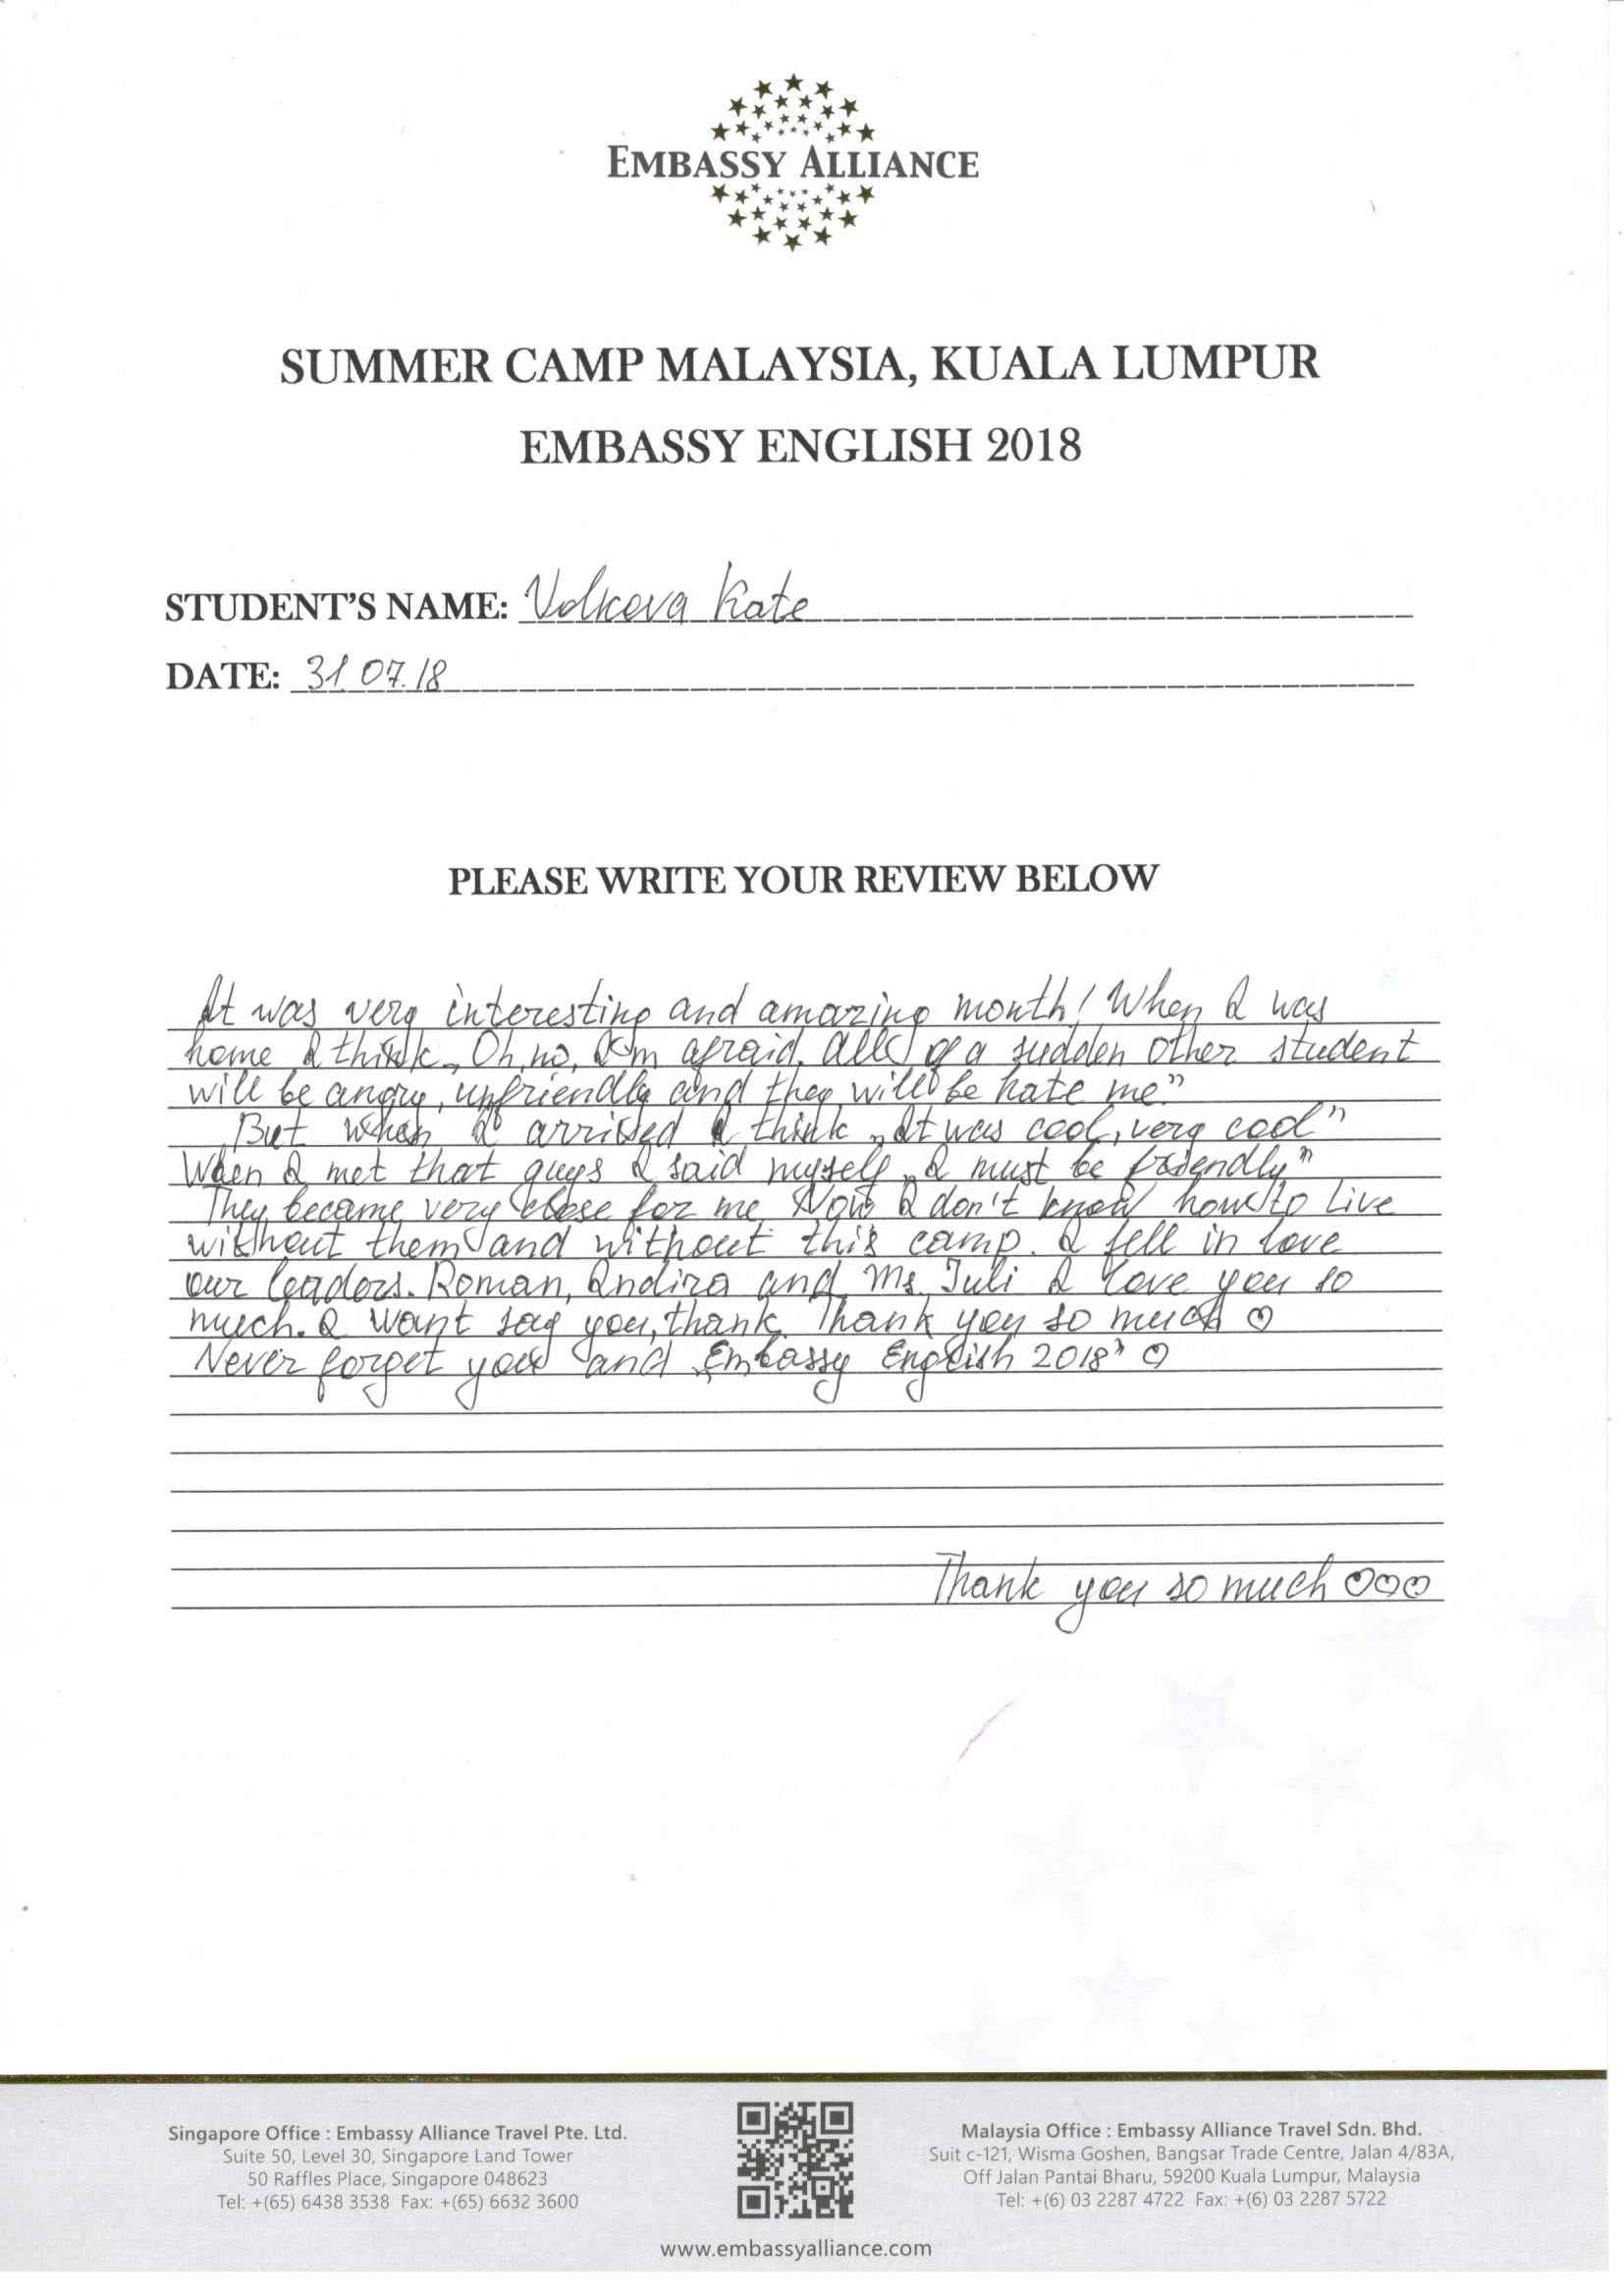 EMBASSY ALLIANCE
SUMMER CAMP MALAYSIA, KUALA LUMPUR
EMBASSY ENGLISH 2018
STUDENT'S NAME: Volkova Kate
DATE: 31.07.18
PLEASE WRITE YOUR REVIEW BELOW
It was very interesting and amazing month! When I was
home I think „Oh, no, I'm afraid. All of a sudden other student
will be angry, unfriendly and they will be hate me"
But when I arrived I think „It was cool, very cool"
When I met that guys I said myself „I must be friendly"
They became very close for me. Now I don't know how to live
without them and without this camp. I fell in love
our leaders. Roman, Indira and Ms. Juli I love you so
much. I want say you, thank. Thank you so much ♡
Never forget you and „Embassy English 2018" ♡
Thank you so much ♡♡♡
Singapore Office : Embassy Alliance Travel Pte. Ltd.
Suite 50, Level 30, Singapore Land Tower
50 Raffles Place, Singapore 048623
Tel: +(65) 6438 3538 Fax: +(65) 6632 3600
Malaysia Office : Embassy Alliance Travel Sdn. Bhd.
Suit c-121, Wisma Goshen, Bangsar Trade Centre, Jalan 4/83A,
Off Jalan Pantai Bharu, 59200 Kuala Lumpur, Malaysia
Tel: +(6) 03 2287 4722 Fax: +(6) 03 2287 5722
www.embassyalliance.com